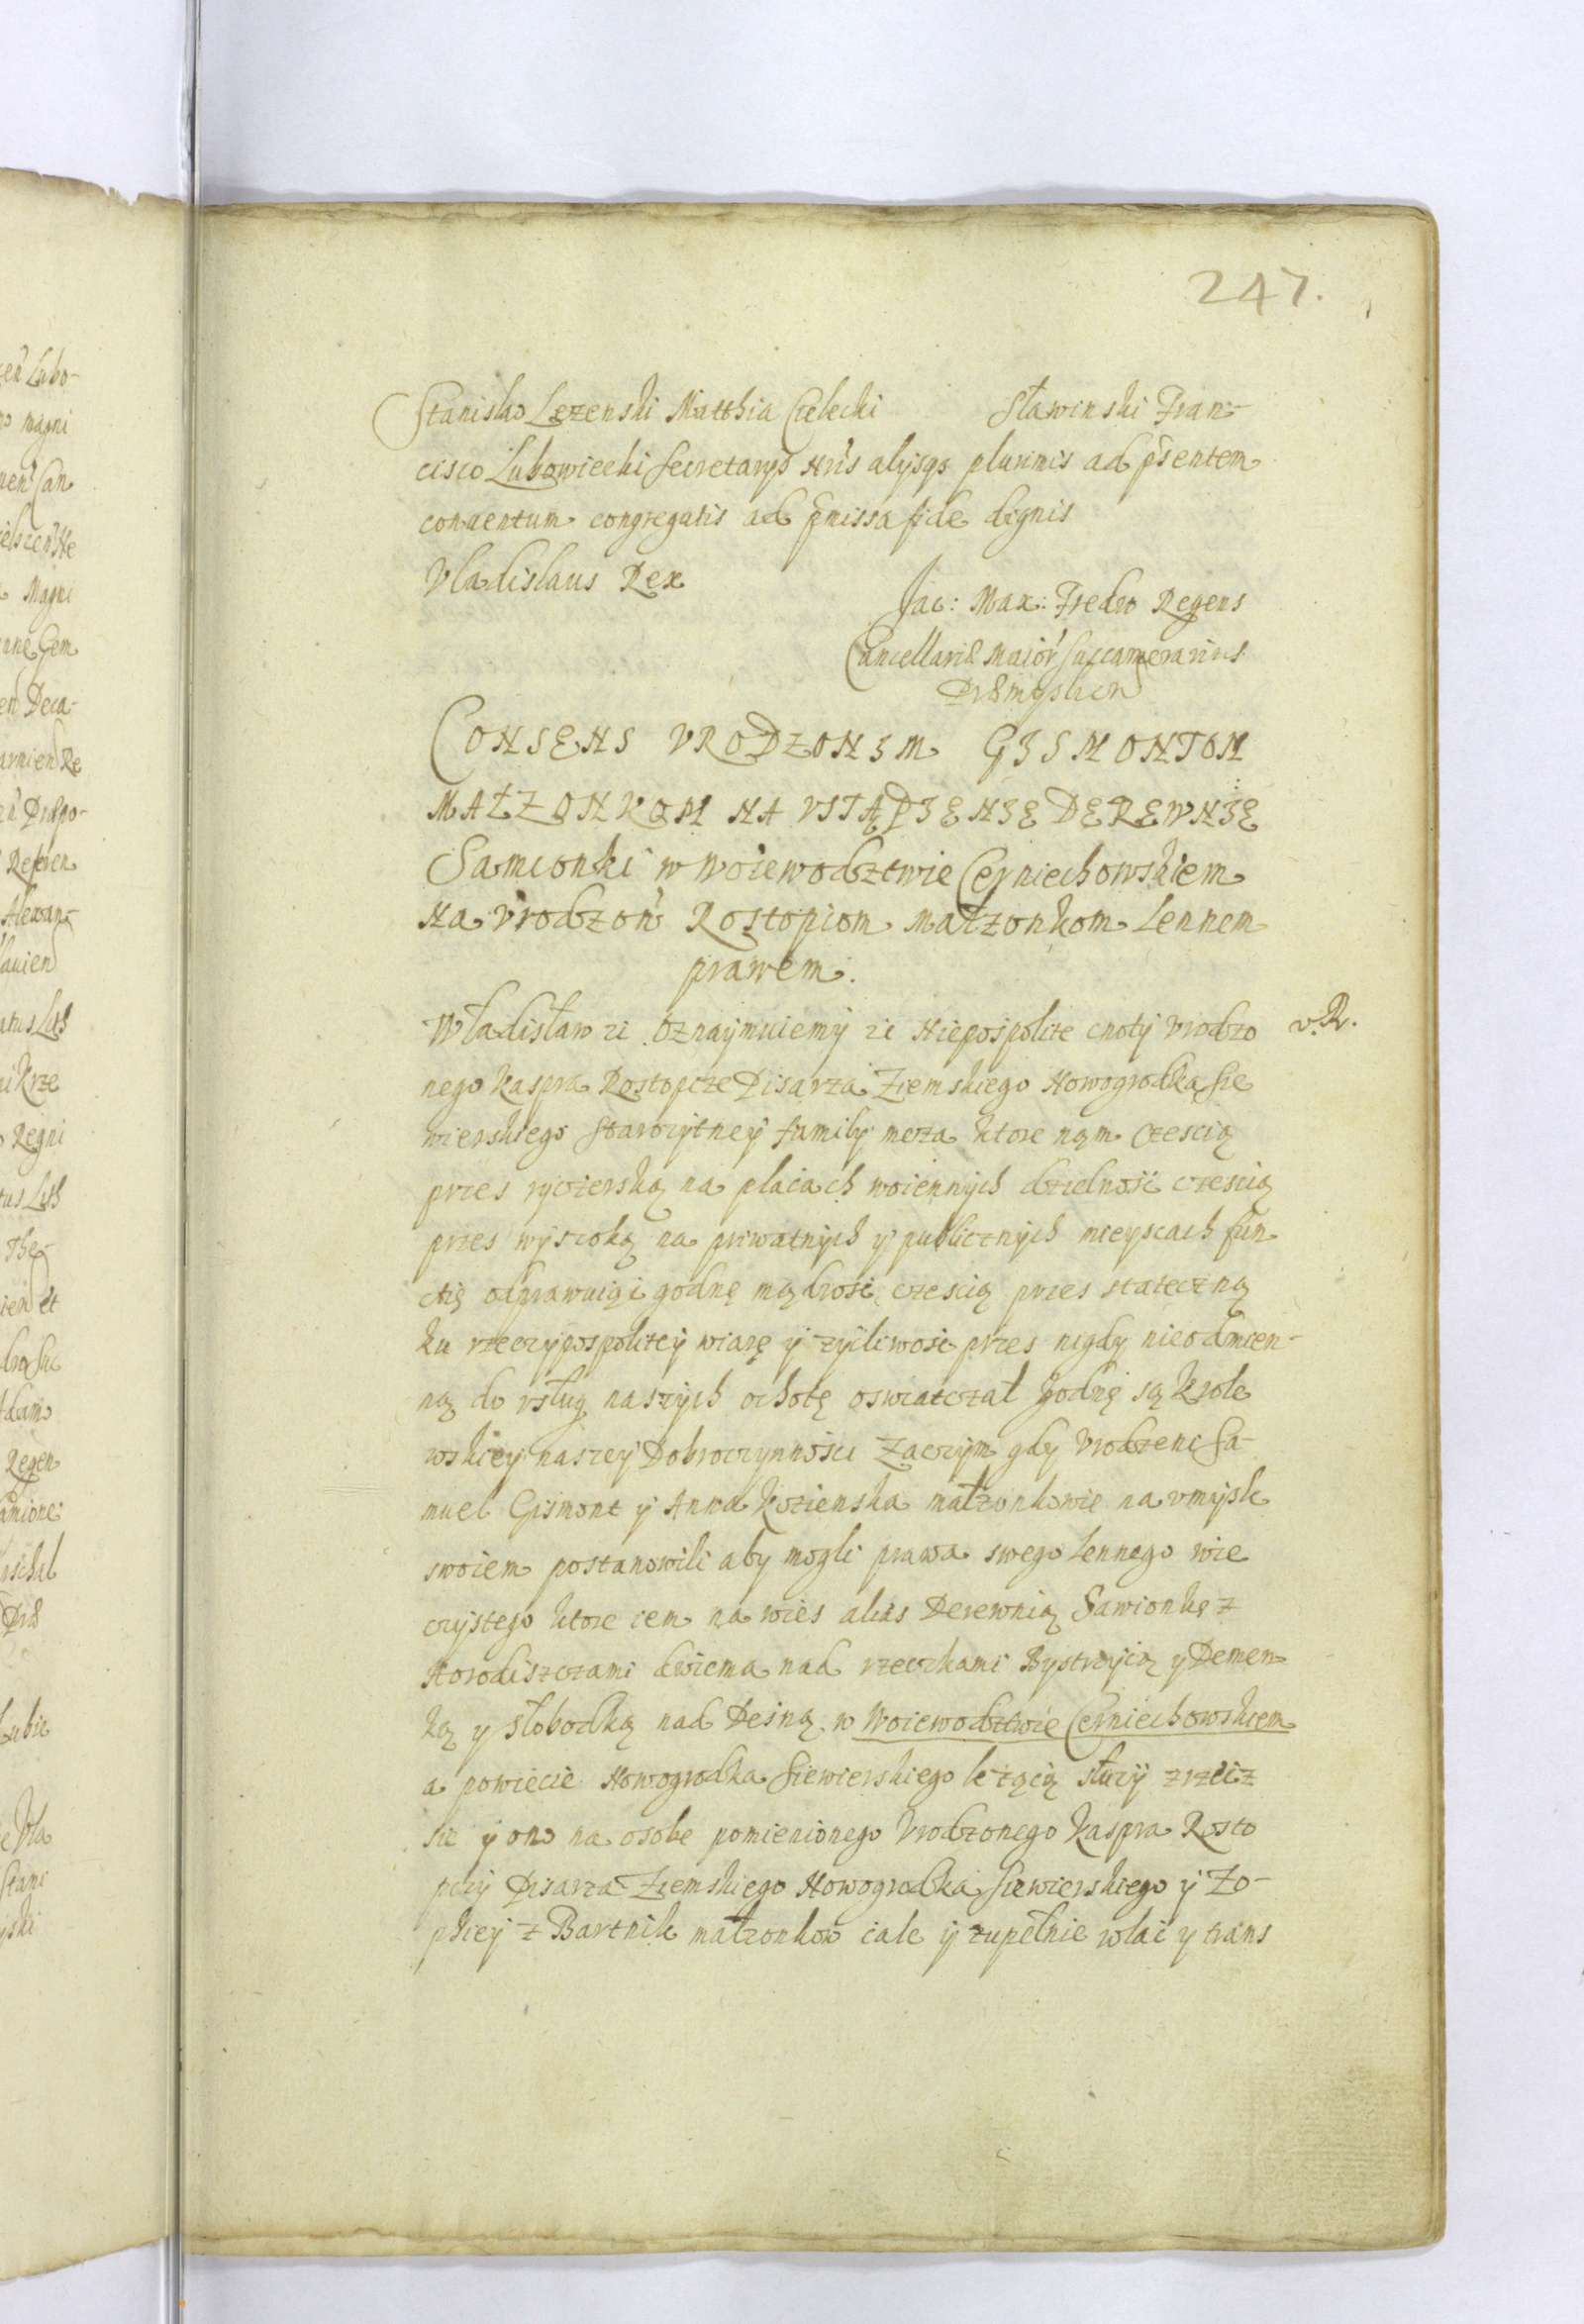 247.
Stanislao Lezenski Matthia Cielecki Sławinski Fran-
cisco Lubowiecki Secretarys Nris alijsqs plurimis ad psentem
conuentum congregatis ad pmissa fide dignis
Vladislaus Rex
Jac: Max: Fredro Regens
Cancellariæ Maior Succamerarius
Præmyslien
CONSENS VRODZONYM GYSMONTOM
MAŁZONKOM NA VSTĄPIENIE DEREWNIE
Sawionki w Woiewodztwie Cerniechowskiem
Na Vrodzon Rostopiom Małzonkom Lennem
prawem.
Władisław zi Oznaÿmuiemÿ ze Niepospolite cnotÿ vrodzo
v. R.
nego Kaspra Rostopcze Pisarza Ziemskiego Nowogrodka Sie
wierskiego starozÿtneÿ familÿ męza ktore nąm Czescią
przes rÿcierską na placach woiennÿch dzielnosc czescią
przes wÿsoką na priwatnÿch ÿ publicznÿch mieyscach fun
ctię odprawuiąc godnę mądrosc, czescią przes stateczną
ku rzeczÿpospoliteÿ wiarę ÿ zÿcliwosc przes nigdy nieodmien-
ną do vsług naszÿch ochotę oswiatczał godnę są Krole
wskiey naszeÿ Dobroczynnosci Zaczÿm gdy Vrodzeni Sa-
muel Gismont ÿ Anna Kozienska małzonkowie na vmÿsle
swoiem postanowili aby mogli prawa swego Lennego wie
czÿstego ktore iem na wies alias Derewnią Sawionkę z
Horodiszczami dwiema nad rzeczkami Bystrzÿcą y Demen
ką y słobodką nad Desną w Woiewodztwie Cerniechowskiem
a powiecie Nowogrodka Siewierskiego lezącą słuzÿ zrzecz
sie ÿ ono na osobe pomienionego Vrodzonego Kaspra Rosto
pczÿ Pisarza Ziemskiego Nowogrodka Siewierskiego ÿ Zo-
phieÿ z Bartnik małzonkow cale ÿ zupełnie wlac y trans